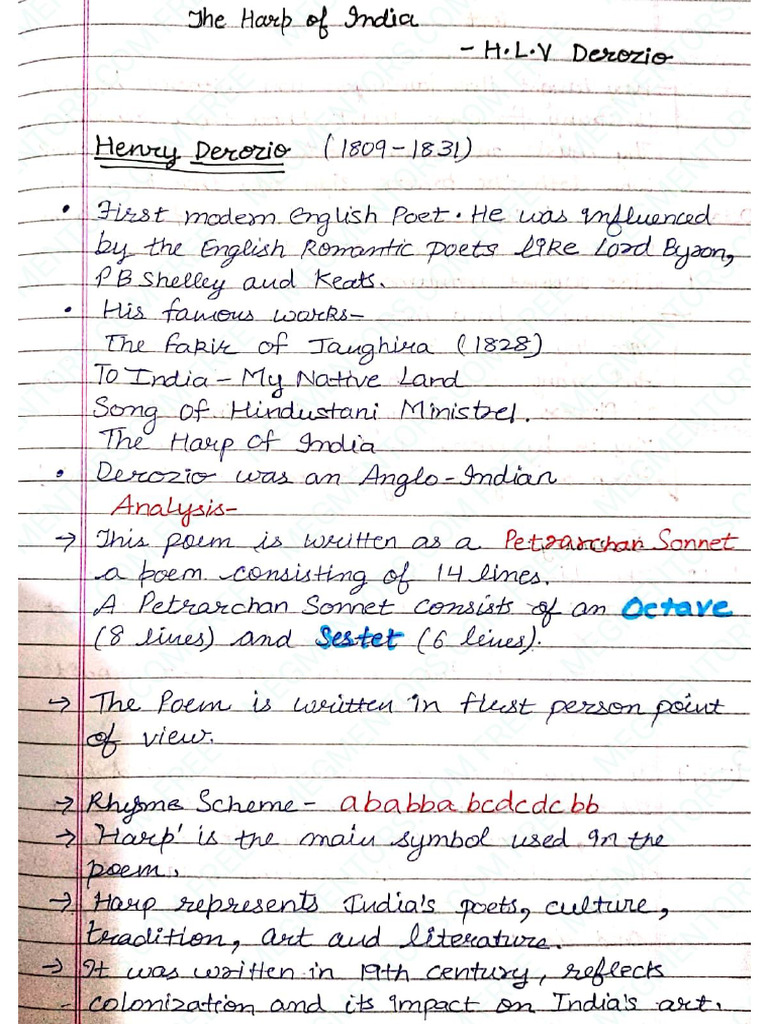 The Harp of India
- H.L.V Derozio
Henry Derozio (1809-1831)
• First modern English Poet. He was influenced
by the English Romantic poets like Lord Byron,
P B Shelley and Keats.
• His famous works-
The Fakir of Jaughira (1828)
To India - My Native Land
Song of Hindustani Ministrel.
The Harp Of India
• Derozio was an Anglo-Indian
Analysis-
→ This poem is written as a Petrarchan Sonnet
a poem consisting of 14 lines.
A Petrarchan Sonnet consists of an Octave
(8 lines) and Sestet (6 lines).
→ The Poem is written in first person point
of view.
→ Rhyme Scheme - ababba bcdcdc bb
→ 'Harp' is the main symbol used in the
poem.
→ Harp represents India's poets, culture,
tradition, art and literature.
→ It was written in 19th century, reflects
- colonization and its impact on India's art.